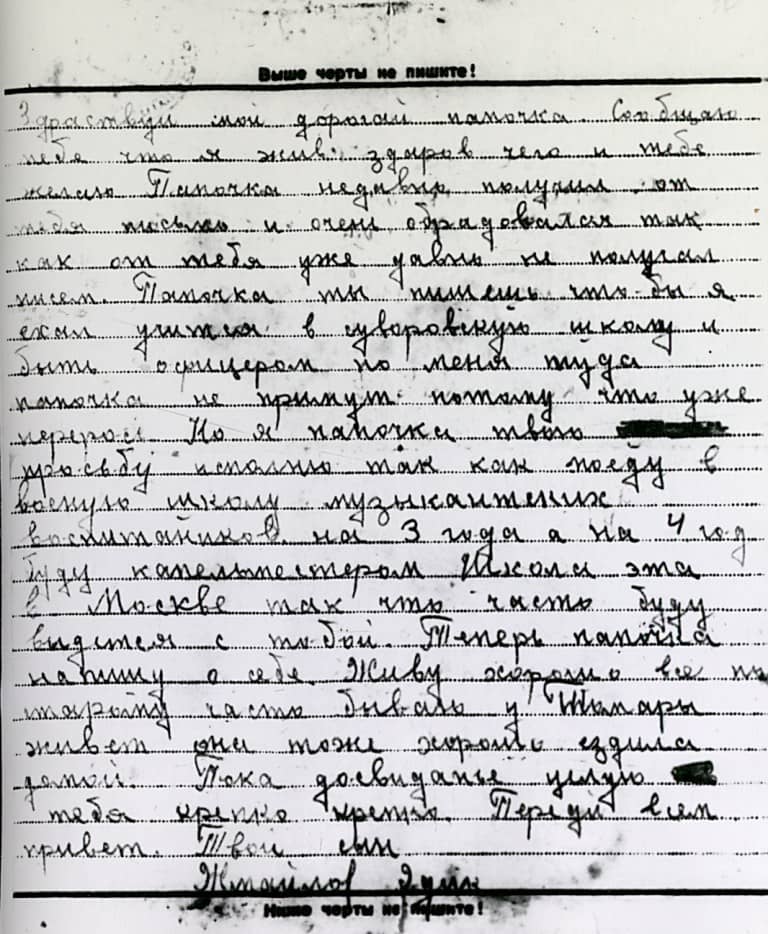 Выше черты не пишите!
Здраствуй мой дорогой папочка Сообщаю
тебе что я жив здаров чего и тебе
желаю Папочка недавно получил от
тебя письмо и очень обрадовался так
как от тебя уже давно не получал
писем. Папочка ты пишешь что бы я
ехал учится в суворовскую школу и
быть офицером но меня туда
папочка не примут потому что уже
перерос Но я папочка твою
просьбу исполню так как поеду в
военую школу музыкантских
воспитаников на 3 года а на 4 год
буду капельместером Школа эта
в Москве так что часто буду
видется с тобой. Теперь папочка
напишу о себе Живу хорошо все по
старому часто бываю у Тамары
живет она тоже хорошо ездила
домой. Пока досвиданье целую
тебя крепко крепко. Передай всем
привет. Твой сын
Эдик
Ниже черты не пишите!